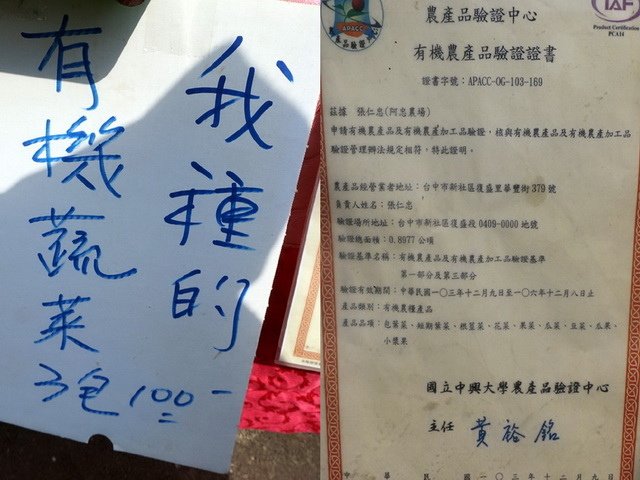 我種的
有機蔬菜
3包100-
APACC
TAF
Product Certification
PCA16
農產品驗證中心
有機農產品驗證證書
證書字號：APACC-OG-103-169
茲據 張仁忠(阿忠農場)
申請有機農產品及有機農產加工品驗證，核與有機農產品及有機農產加工品
驗證管理辦法規定相符，特此證明。
農產品經營業者地址：台中市新社區復盛里華豐街379號
負責人姓名：張仁忠
驗證場所地址：台中市新社區復盛段0409-0000地號
驗證總面積：0.8977公頃
驗證基準名稱：有機農產品及有機農產加工品驗證基準
第一部分及第三部分
驗證有效期間：中華民國一〇三年十二月九日至一〇六年十二月八日止
產品類別：有機農糧產品
產品品項：包葉菜、短期葉菜、根莖菜、花菜、果菜、瓜菜、豆菜、瓜果、
小漿果
國立中興大學農產品驗證中心
主任 黃裕銘
華 民 國 一〇三年十二月九日